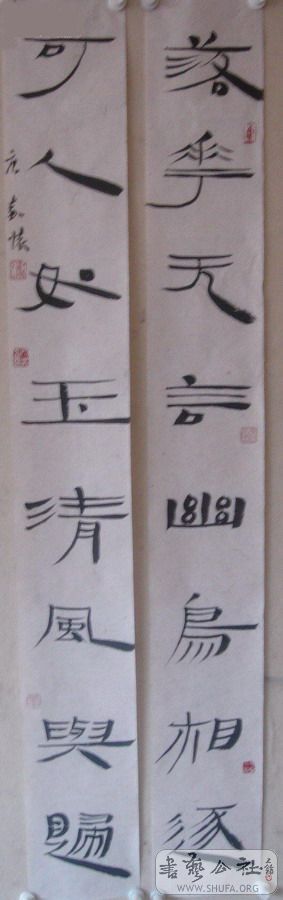 落華无言幽鳥相逐
可人如玉清風與歸
書藝公社
WWW.SHUFA.ORG